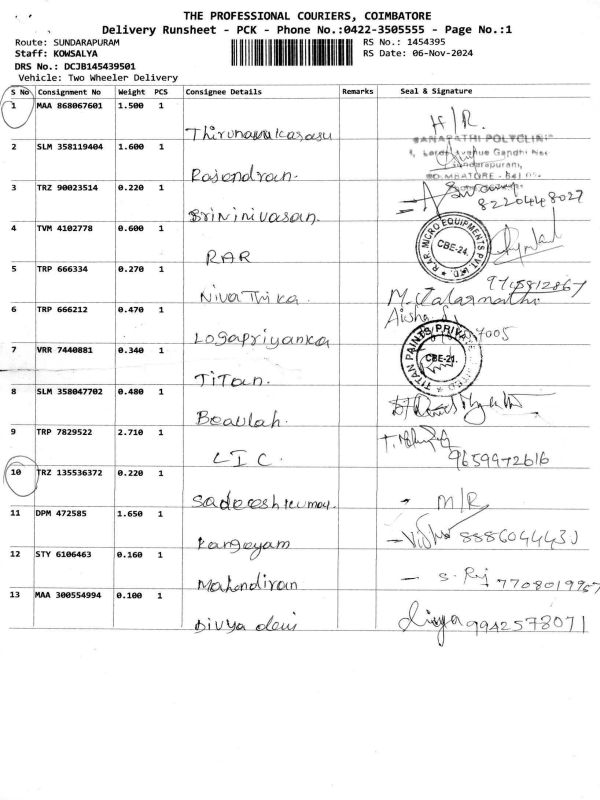 THE PROFESSIONAL COURIERS, COIMBATORE
Delivery Runsheet - PCK - Phone No.:0422-3505555 - Page No.:1
Route: SUNDARAPURAM RS No.: 1454395
Staff: KOWSALYA RS Date: 06-Nov-2024
DRS No.: DCJB145439501
Vehicle: Two Wheeler Delivery
S No Consignment No Weight PCS Consignee Details Remarks Seal & Signature
1 MAA 868067601 1.500 1
Thirunavukarasu H/R.
GANAPATHI POLYCLINIC
2 SLM 358119404 1.600 1
Sundarapuram,
Rajendran. COIMBATORE
3 TRZ 90023514 0.220 1
Srininivasan 8220448027
4 TVM 4102778 0.600 1
R.A.R. MICRO EQUIPMENTS PVT. LTD.
CBE-24.
RAR
5 TRP 666334 0.270 1
9705812867
Nivathika.
6 TRP 666212 0.470 1
Aisha
7005
Logapriyanka
7 VRR 7440881 0.340 1
TITAN PAINTS PRIVATE LIMITED
CBE-21.
Titan.
8 SLM 358047702 0.480 1
Beaulah.
9 TRP 7829522 2.710 1
LIC. 9659972616
10 TRZ 135536372 0.220 1
M/R
11 DPM 472585 1.650 1
Kangeyam
12 STY 6106463 0.160 1
Mahendiran S. Raj
13 MAA 300554994 0.100 1
Divya devi Divya 9942573071